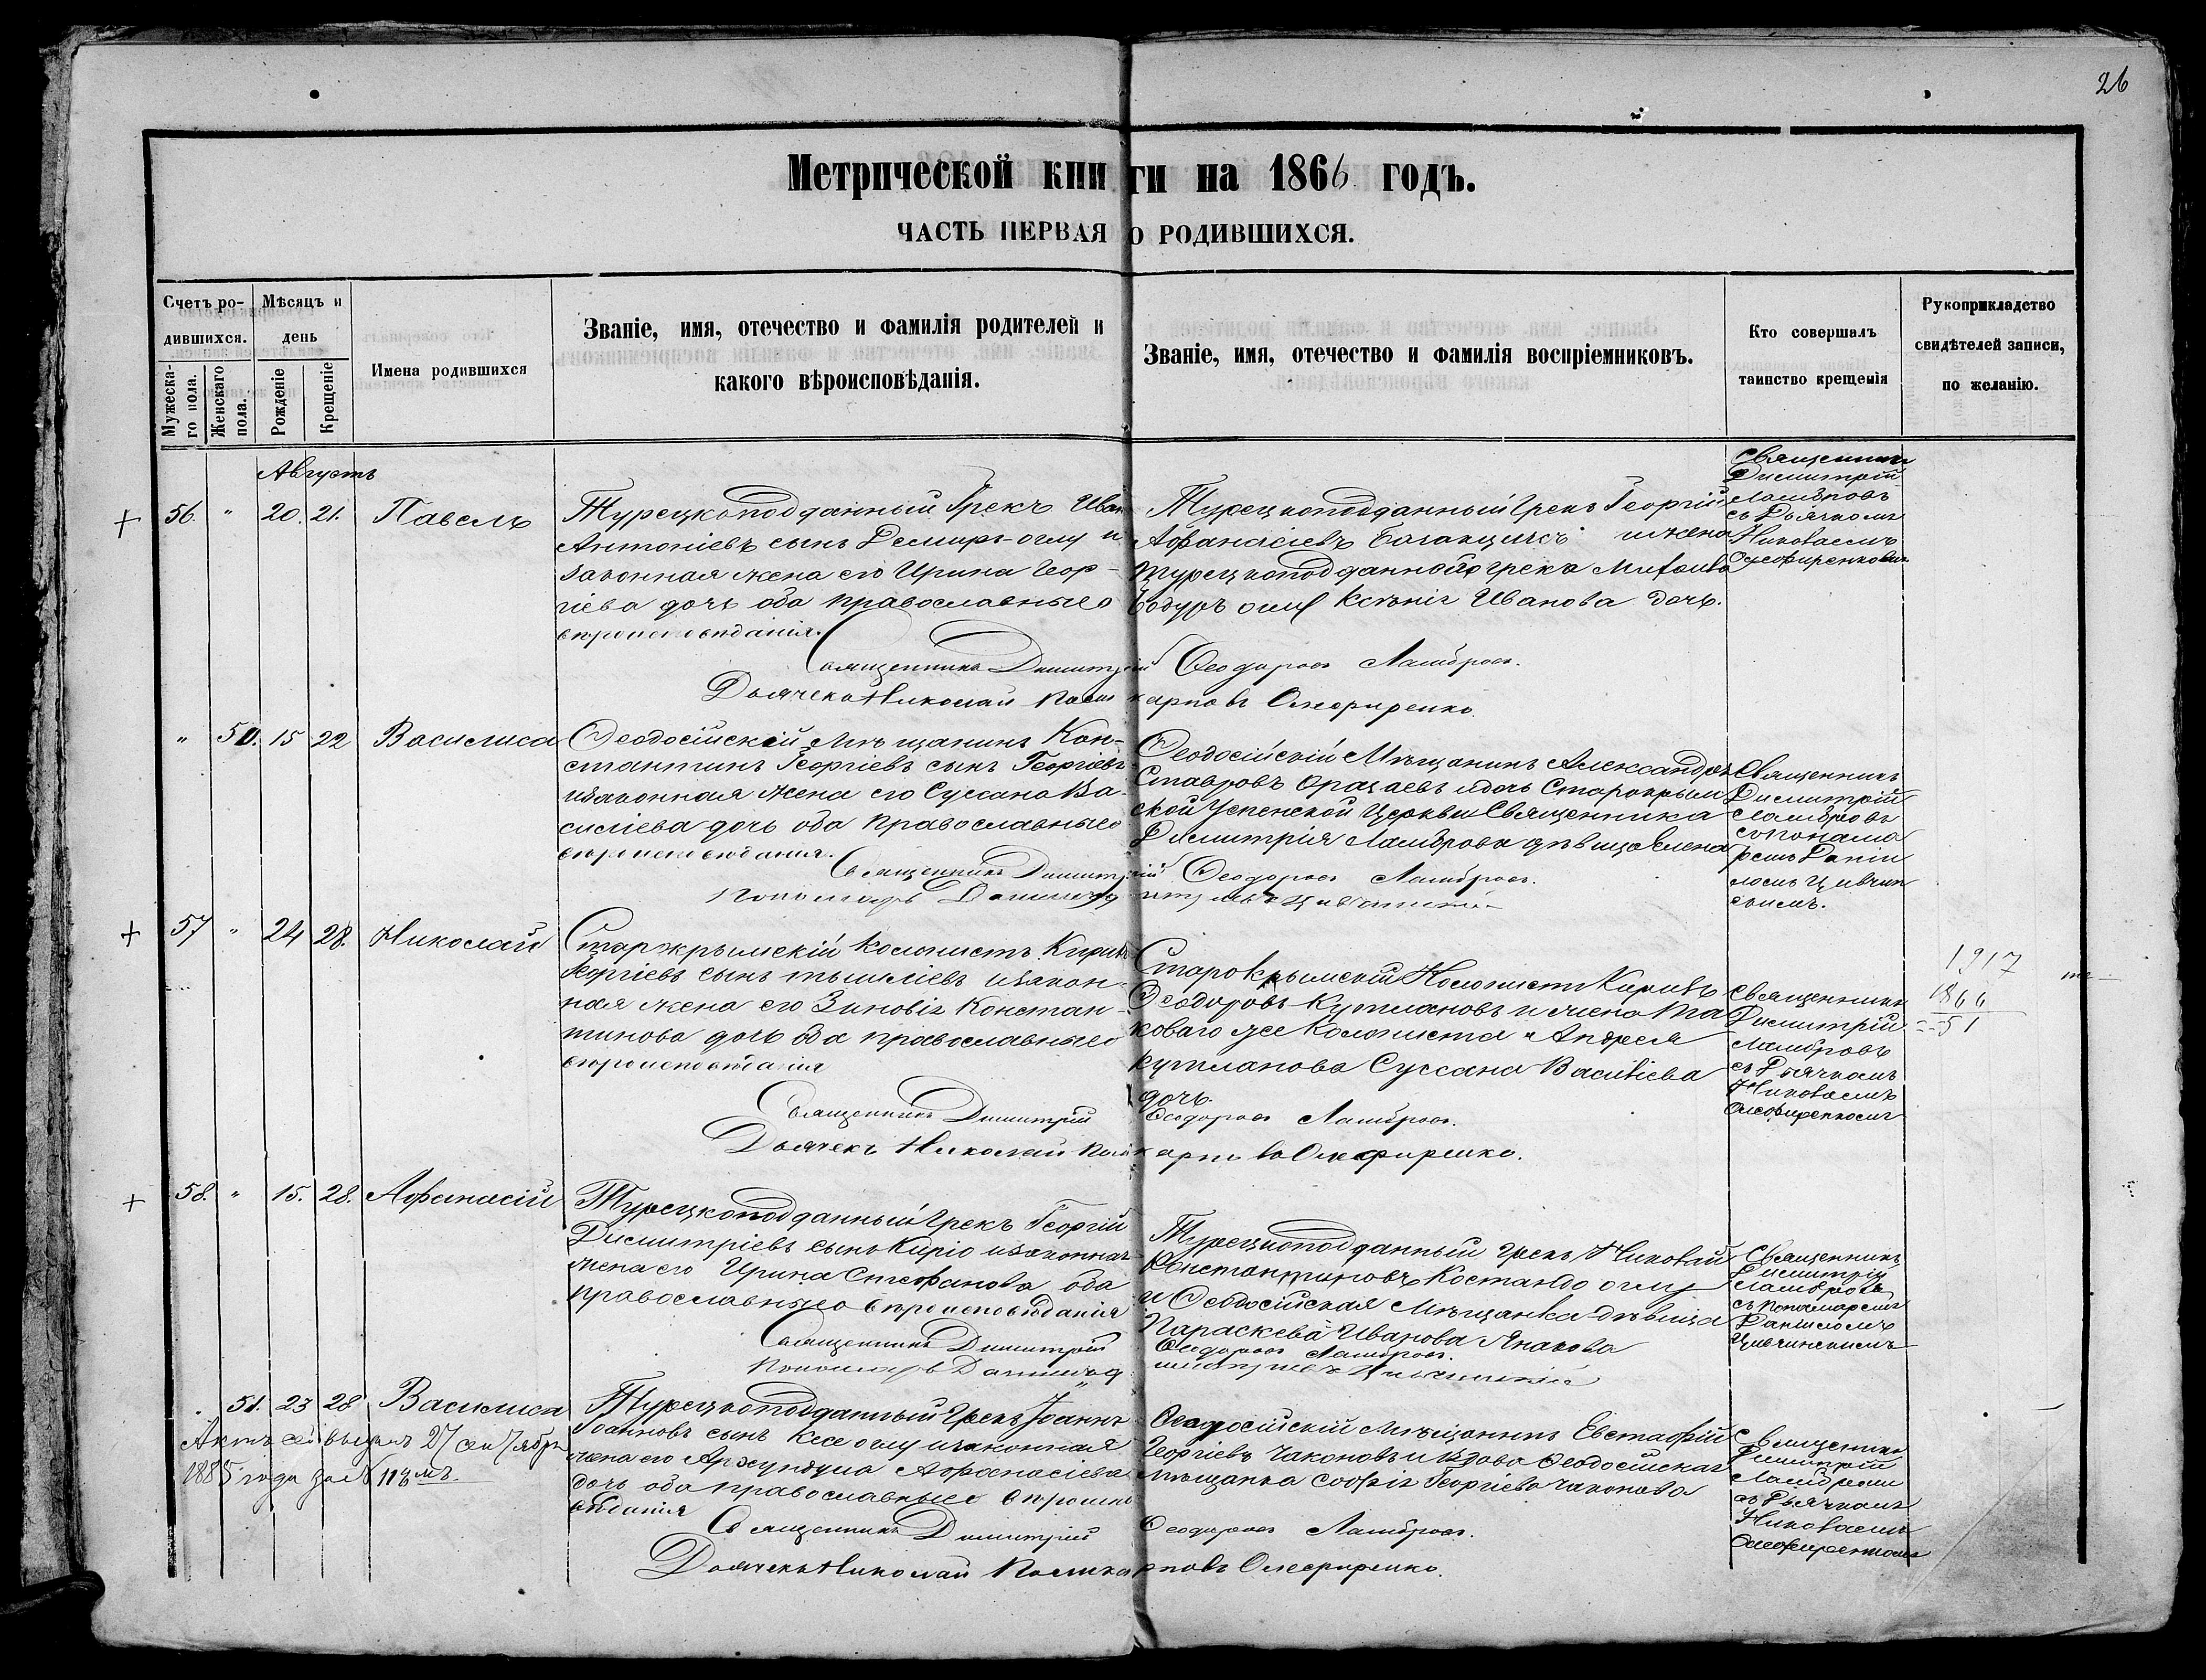 26
Метрической книги на 1866 годъ.
ЧАСТЬ ПЕРВАЯ О РОДИВШИХСЯ.
Счетъ ро-
дившихся.
Мужеска-
го пола.
Женскаго
пола.
Мѣсяцъ и
день
Рожденіе
Крещеніе
Имена родившихся
Званіе, имя, отечество и фамилія родителей и
какого вѣроисповѣданія.
Званіе, имя, отечество и фамилія воспріемниковъ.
Кто совершалъ
таинство крещенія
Рукоприкладство
свидѣтелей записи,
по желанію.
Августъ
56. " 20. 21. Павелъ
Турецкоподданный Грекъ Иван
Антоніевъ сынъ Демиръ-оглу и
законная жена его Ирина Геор-
гіева дочь оба православнаго
вѣроисповѣданія.
Турецкоподданный Грекъ Георгій
Афанасіевъ и жена
турецкоподданнаго грека
оглу Ксенія Иванова дочь.
Священникъ
Димитрій
Ламбровъ
съ Дьячкомъ
Николаемъ
Олефиренковымъ
Священникъ Димитрій Ѳеодоровъ Ламбровъ.
Дьячекъ Николай Поликарповъ Олефиренко.
" 50. 15 22 Василиса
Ѳеодосійскій Мѣщанинъ Кон-
стантинъ Георгіевъ сынъ Георгіевъ
и законная жена его Суссана Ва-
силіева дочь оба православнаго
вѣроисповѣданія.
Ѳеодосійскій Мѣщанинъ Александръ
Ставровъ и дочь Старокрым
ской Успенской Церкви Священника
Димитрія Ламброва дѣвица Елена
Священникъ
Димитрій
Ламбровъ
съ понама
ремъ Дани
ломъ Цивчин
скимъ.
Священникъ Димитрій Ѳеодоровъ Ламбровъ.
Пономарь Даніилъ
57 " 24 28. Николай
Старокрымскій колонистъ Кирилъ
Георгіевъ сынъ и закон-
ная жена его Зиновія Констан-
тинова дочь оба православнаго
вѣроисповѣданія
Старокрымскій Колонистъ Кирилъ
Ѳеодоровъ Куплановъ и жена та
коваго же колониста Андрея
Купланова Суссана Василіева
дочь.
Священникъ
Димитрій
Ламбровъ
съ Дьячкомъ
Николаемъ
Олефиренкомъ
1917
1866
51
Священникъ Димитрій Ѳеодоровъ Ламбровъ.
Дьячекъ Николай Поликарповъ Олефиренко.
58. " 15. 28. Афанасій
Турецкоподданный Грекъ Георгій
Димитріевъ сынъ Киріо и законная
жена его Ирина Стефанова оба
православнаго вѣроисповѣданія
Турецкоподданный Грекъ Николай
Константиновъ Костандо оглу
и Ѳеодосійская Мѣщанка дѣвица
Параскева Иванова Янакова
Священникъ
Димитрій
Ламбровъ
съ пономаремъ
Даниломъ
Цивчинскимъ
Священникъ Димитрій Ѳеодоровъ Ламбровъ.
Пономарь Даніилъ
51. 23 28 Василиса
Турецкоподданный Грекъ Іоаннъ
Іоанновъ сынъ Кесе оглу и законная
жена его Афанасіева
дочь оба православнаго вѣроиспо
вѣданія
Ѳеодосійскій Мѣщанинъ Евстафій
Георгіевъ Чаконовъ и вдова Ѳеодосійская
мѣщанка Софія Георгіева Чаконова
Священникъ
Димитрій
Ламбровъ
съ Дьячкомъ
Николаемъ
Олефиренкомъ
Актъ сей выданъ 27 сентября
1885 года за № 113мъ.
Священникъ Димитрій Ѳеодоровъ Ламбровъ.
Дьячекъ Николай Поликарповъ Олефиренко.